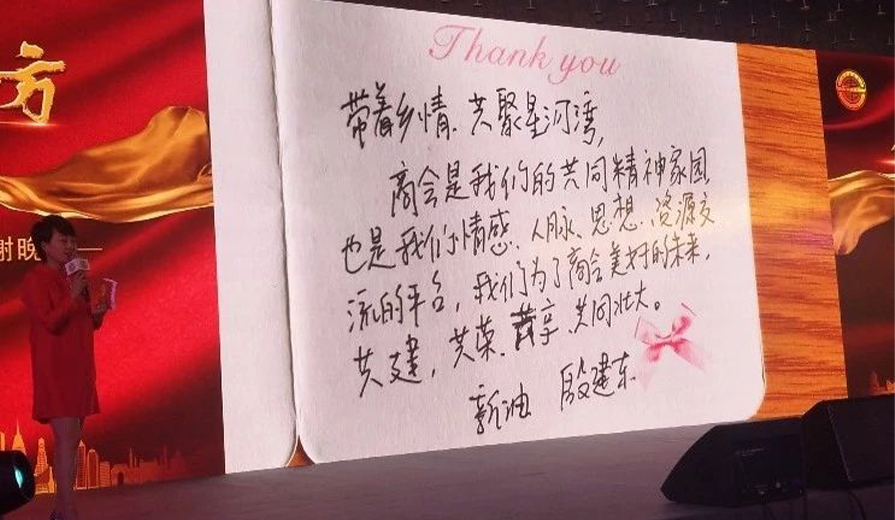 方
谢晚
Thank you
带着乡情、共聚星河湾,
商会是我们的共同精神家园,
也是我们情感、人脉、思想、资源交
流的平台, 我们为了商会美好的未来,
共建, 共荣、共享、共同壮大。
殷建东